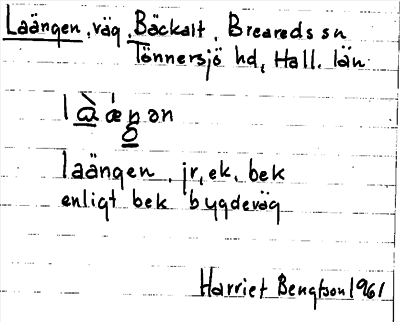 Laängen, väg, Bäckalt, Breareds sn
Tönnersjö hd, Hall. län
laängen, jr, ek, bek
enligt bek bygdeväg
Harriet Bengtson 1961